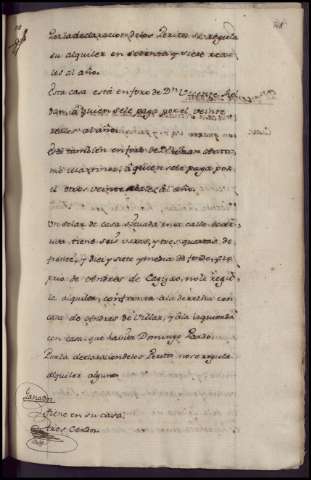 Por la declaracion de los Peritos se regula
su alquiler en setenta y siete rea-
les al año.
Esta casa está en foro de Dn Vicente
dan, a quien se le paga por el veinte
reales al año.
Está tambien en foro de Dn
mo Martinez, a quien se le paga por
el otros veinte reales al año.
Un solar de casa situada en la calle
tiene seis varas, y tres quartas de
frente, y diez y siete y media de fondo, pro-
prio de Andres de no le regu-
la alquiler, confronta a la derecha con
casa de Andres de Villar, y a la izquierda
con casa que havita Domingo Pardo.
Por la declaracion de los Peritos no se regula
alquiler alguno.
Ganado
Tiene en su casa
tres Cerdos